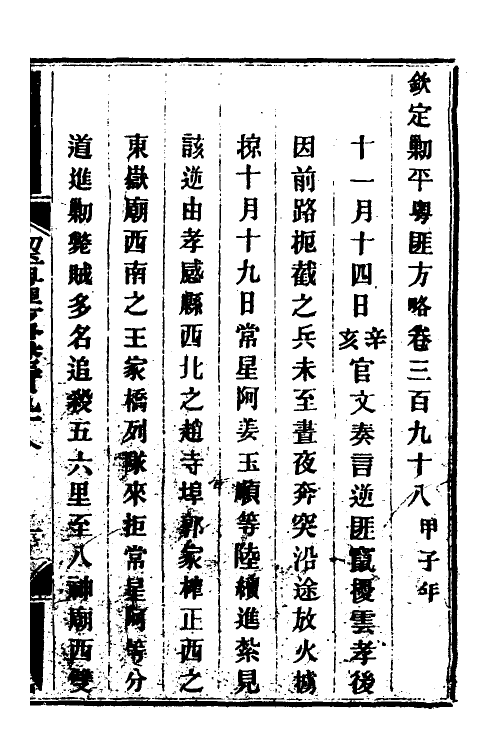 欽定剿平粵匪方略卷三百九十八 甲子年
十一月十四日辛亥官文奏言逆匪竄擾雲孝後
因前路扼截之兵未至晝夜奔突沿途放火擄
掠十月十九日常星阿姜玉順等陸續進紮見
該逆由孝感縣西北之趙寺埠郭家檡正西之
東嶽廟西南之王家橋列隊來拒常星阿等分
道進剿斃賊多名追殺五六里至八神廟西雙